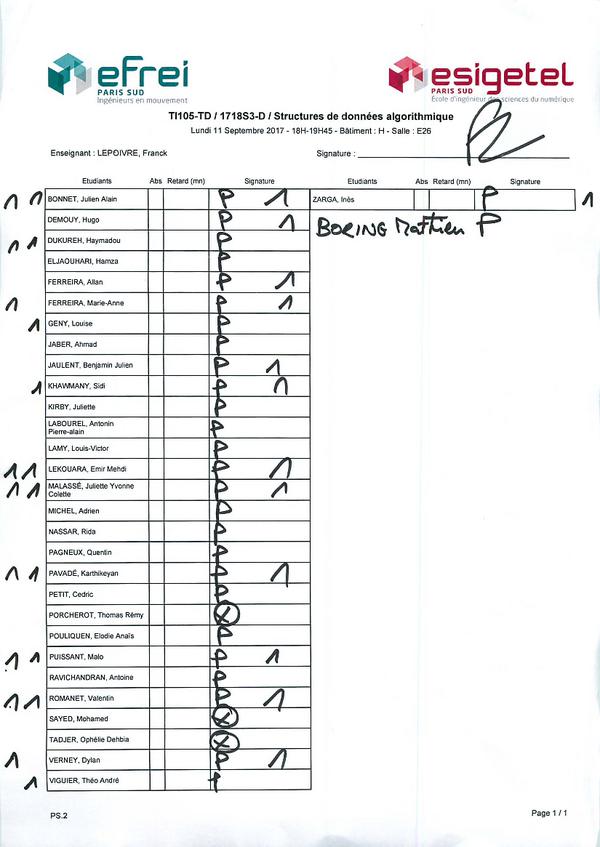 efrei
PARIS SUD
Ingénieurs en mouvement
esigetel
PARIS SUD
École d'ingénieur des sciences du numérique
TI105-TD / 1718S3-D / Structures de données algorithmique
Lundi 11 Septembre 2017 - 18H-19H45 - Bâtiment : H - Salle : E26
Enseignant : LEPOIVRE, Franck Signature :
Etudiants Abs Retard (mn) Signature Etudiants Abs Retard (mn) Signature
1 1 BONNET, Julien Alain P 1 ZARGA, Inès P 1
DEMOUY, Hugo P 1 BORING Mathieu P
1 1 DUKUREH, Haymadou P
ELJAOUHARI, Hamza P
FERREIRA, Allan P 1
1 FERREIRA, Marie-Anne P 1
1 GENY, Louise P
JABER, Ahmad P
JAULENT, Benjamin Julien P 1
1 KHAWMANY, Sidi P 1
KIRBY, Juliette P
LABOUREL, Antonin
Pierre-alain P
LAMY, Louis-Victor P
1 1 LEKOUARA, Emir Mehdi P 1
1 1 MALASSÉ, Juliette Yvonne
Colette P 1
MICHEL, Adrien P
NASSAR, Rida P
PAGNEUX, Quentin P
1 1 PAVADÉ, Karthikeyan P 1
PETIT, Cedric P
PORCHEROT, Thomas Rémy X
POULIQUEN, Elodie Anaïs P
1 1 PUISSANT, Malo P 1
RAVICHANDRAN, Antoine P
1 1 ROMANET, Valentin P 1
SAYED, Mohamed X
TADJER, Ophélie Dehbia X
1 VERNEY, Dylan P 1
1 VIGUIER, Théo André P
PS.2 Page 1 / 1